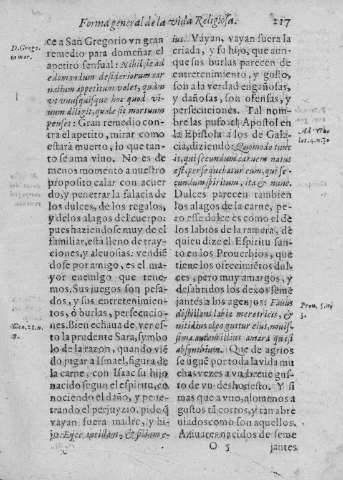 Forma general de la vida Religiosa. 217
D. Grego.
in mor.
ce a San Gregorio vn gran
remedio para domeñar el
apetito sensual: Nihil sic ad
edomandum desideriorum car
nalium appetitum valet, quàm
vt vnusquisque hoc quod vi-
uum diligit, quale sit mortuum
penset: Gran remedio contra
el apetito, mirar como
estarà muerto, lo que tan-
to se ama viuo. No es de
menos momento a nuestro
proposito calar con acuer
do, y penetrar la falacia de
los dulces, de los regalos,
y de los alagos del cuerpo:
pues haziendose muy de el
familiar, està lleno de tray-
ciones, y aleuosias: vendiè
dose por amigo, es el ma-
yor enemigo que tene-
mos. Sus juegos son pesa-
dos, y sus entretenimien-
tos, ò burlas, persecucio-
nes. Bien echaua de ver es-
to la prudente Sara, symbo
lo de la razon, quando viẽ
do jugar a Ismael, figura de
la carne, con Isaac su hijo
nacido segun el espiritu, co
nociendo el daño, y pene-
trando el perjuyzio, pide q̃
vayan fuera madre, y hi-
jo: Eijce ancillam, & filium e-
Gen. 21. n.
ius. Vayan, vayan fuera la
criada, y su hijo, que aun-
que sus burlas parecen de
entretenimiento, y gusto,
son a la verdad engañosas,
y dañosas, son ofensas, y
persecuciones. Tal nom-
bre las puso el Apostol en
la Epistola a los de Gala-
cia, diziendo: Quomodo tunc
is, qui secundum carnem natus
est, persequebatur eum, qui se-
cundum spiritum, ita & nunc.
Dulces parecen tambien
los alagos de la carne, pe-
ro esse dulce es como el de
los labios de la ramera, de
quien dize el Espiritu san-
to en los Prouerbios, que
tiene los ofrecimiẽtos dul-
ces, pero muy amargos, y
desabridos los dexos seme
jantes a los agenjos: Fauus
distillans labia meretricis, &
nitidius oleo guttur eius, nouis-
sima autem illius amara quasi
absynthium. Que de agrios
se jugaè por toda la vida mu
chas vezes a vn breue gus-
to de vn deshonesto. Y si
mas que a vno, alomenos a
gustos tã cortos, y tan abre
uiados como son aquellos.
nacidos de seme
Ad Gala-
Prou. 5. nu
3.
O 5 jantes